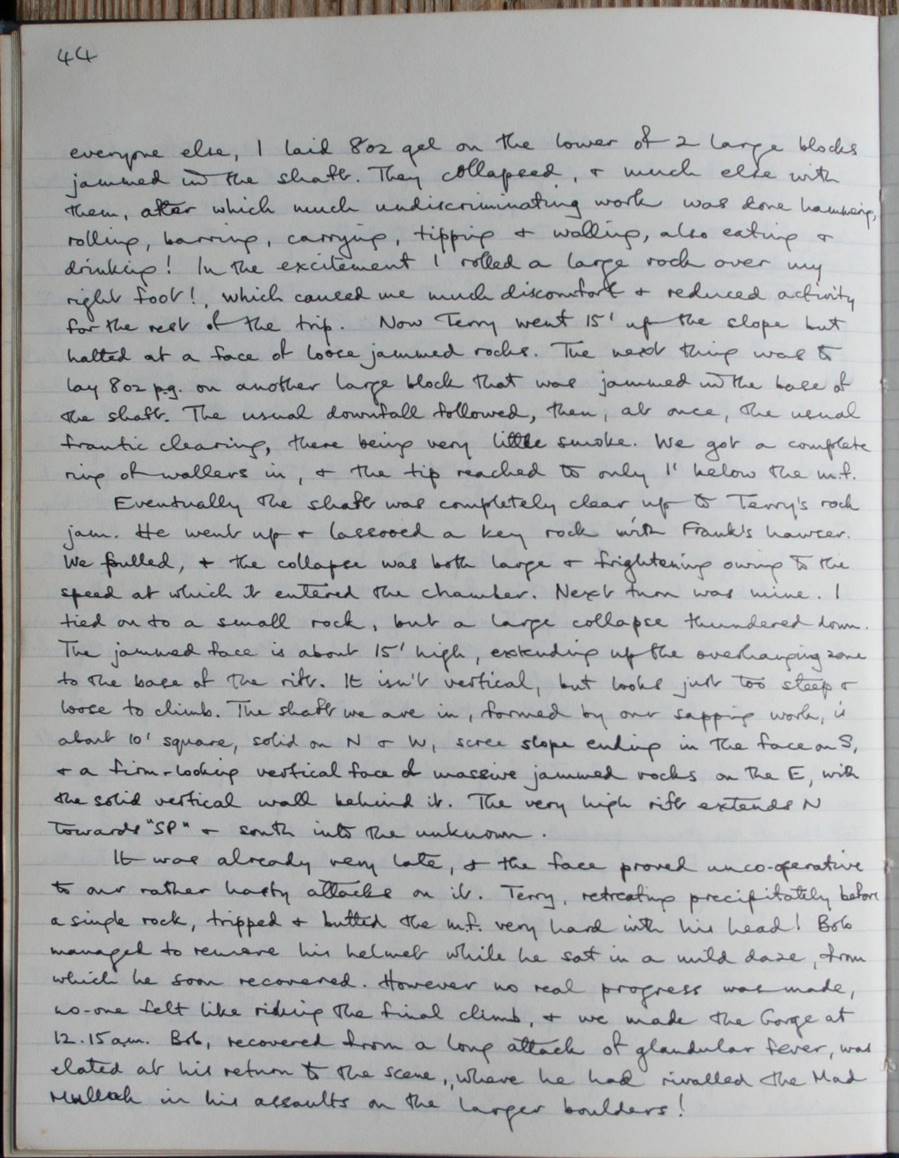 44
everyone else, I laid 8oz gel on the lower of 2 large blocks
jammed in the shaft. They collapsed, & much else with
them, after which much undiscriminating work was done hammering,
rolling, barring, carrying, tipping & walling, also eating &
drinking! In the excitement I rolled a large rock over my
right foot!, which caused me much discomfort & reduced activity
for the rest of the trip. Now Terry went 15' up the slope but
halted at a face of loose jammed rocks. The next thing was to
lay 8oz p.g. on another large block that was jammed in the base of
the shaft. The usual downfall followed, then, at once, the usual
frantic clearing, there being very little smoke. We got a complete
ring of wallers in, & the tip reached to only 1' below the m.f.
Eventually the shaft was completely clear up to Terry's rock
jam. He went up & lassooed a key rock with Frank's hawser.
We pulled, & the collapse was both large & frightening owing to the
speed at which it entered the chamber. Next turn was mine. I
tied on to a small rock, but a large collapse thundered down.
The jammed face is about 15' high, extending up the overhanging zone
to the base of the rift. It isn't vertical, but looks just too steep &
loose to climb. The shaft we are in, formed by our sapping work, is
about 10' square, solid on N & W, scree slope ending in the face on S,
& a firm-looking vertical face of massive jammed rocks on the E, with
the solid vertical wall behind it. The very high rift extends N
towards "SP" & south into the unknown.
It was already very late, & the face proved unco-operative
to our rather hasty attacks on it. Terry, retreating precipitately before
a single rock, tripped & butted the m.f. very hard with his head! Bob
managed to remove his helmet while he sat in a mild daze, from
which he soon recovered. However no real progress was made,
no-one felt like risking the final climb, & we made the Gorge at
12.15 am. Bob, recovered from a long attack of glandular fever, was
elated at his return to the scene, where he had rivalled the Mad
Mullah in his assaults on the larger boulders!